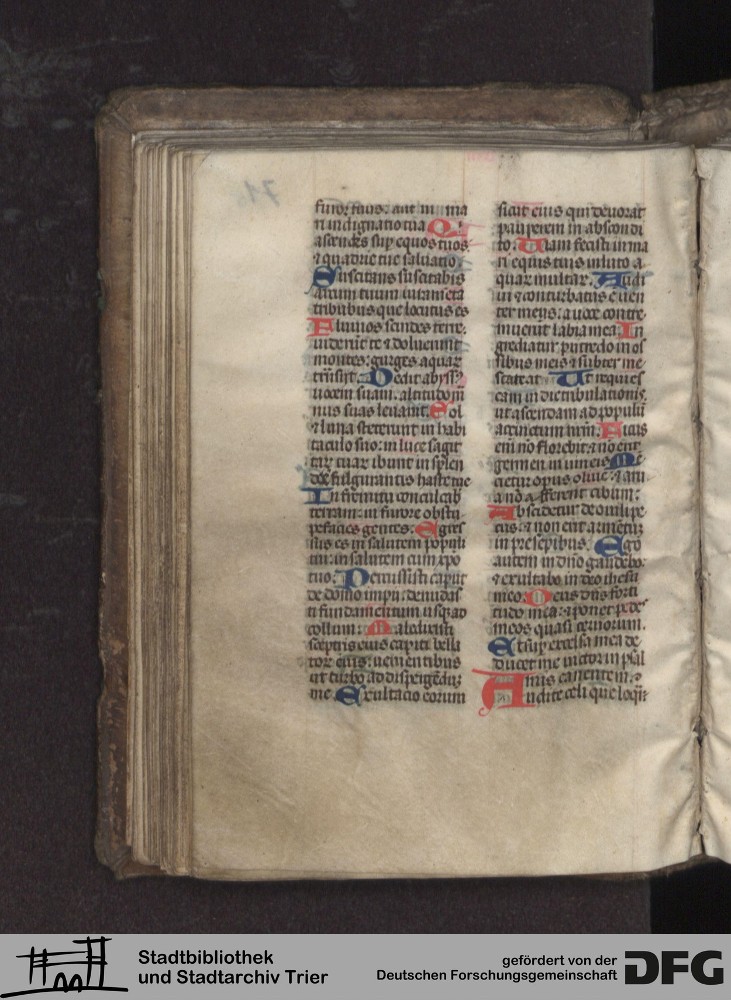 71
furor tuus: aut in ma
ri indignatio tua Qͥ
ascendes sup equos tuos.
⁊ quadrige tue saluatio.
Suscitans suscitabis
arcum tuum iuramēta
tribubus que locutus es
Fluuios scindes terre:
uiderūt te ⁊ doluerunt
montes: gurges aquaꝝ
trāsijt. Dedit abyssꝰ
uocem suam. altitudo mā
nus suas leuauit. Sol
⁊ luna steterunt in habi
taculo suo: in luce sagit
taꝝ tuaꝝ ibunt in splen
dore fulgurantis haste tue
In fremitu conculcab
terram: in furore obstu
pefacies gentes. Egres
sus es in salutem populi
tui: in salutem cum xp̄o
tuo. Percussisti caput
de domo impij: denudas
ti fundamentum usqꝫ ad
collum. Maledixisti
sceptris eius capiti bella
toꝝ eius: uenientibus
ut turbo ad dispergēdū
me. Exultacio eorum
sicut eius qui deuorat
pauperem in abscondi
to. Uiam fecisti in ma
ri equis tuis in luto a
quaꝝ multaꝝ. Audi
ui ⁊ conturbatus ē uen
ter meus: a uoce contre
muerunt labia mea. In
grediatur putredo in os
sibus meis ⁊ subter me
scateat. Ut requies
cam in die tribulationis.
ut ascendam ad populū
accinctum nrm̄. Ficus
enī nō florebit: ⁊ nō erit
germen in uineis. Mē
cietur opus oliue: ⁊ aru
a nō afferent cibum:
Abscidetur de ouili pe
cus: ⁊ non erit armētū
in presepibus. Ego
autem in dn̄o gaudebo:
⁊ exultabo in deo ihesu
meo. Deus dn̄s forti
tudo mea: ⁊ ponet pedes
meos quasi ceruorum.
Et sup excelsa mea de
ducet me uictor in psal
mis canentem.
Audite celi que loqͣr
Stadtbibliothek
und Stadtarchiv Trier
gefördert von der
Deutschen Forschungsgemeinschaft
DFG